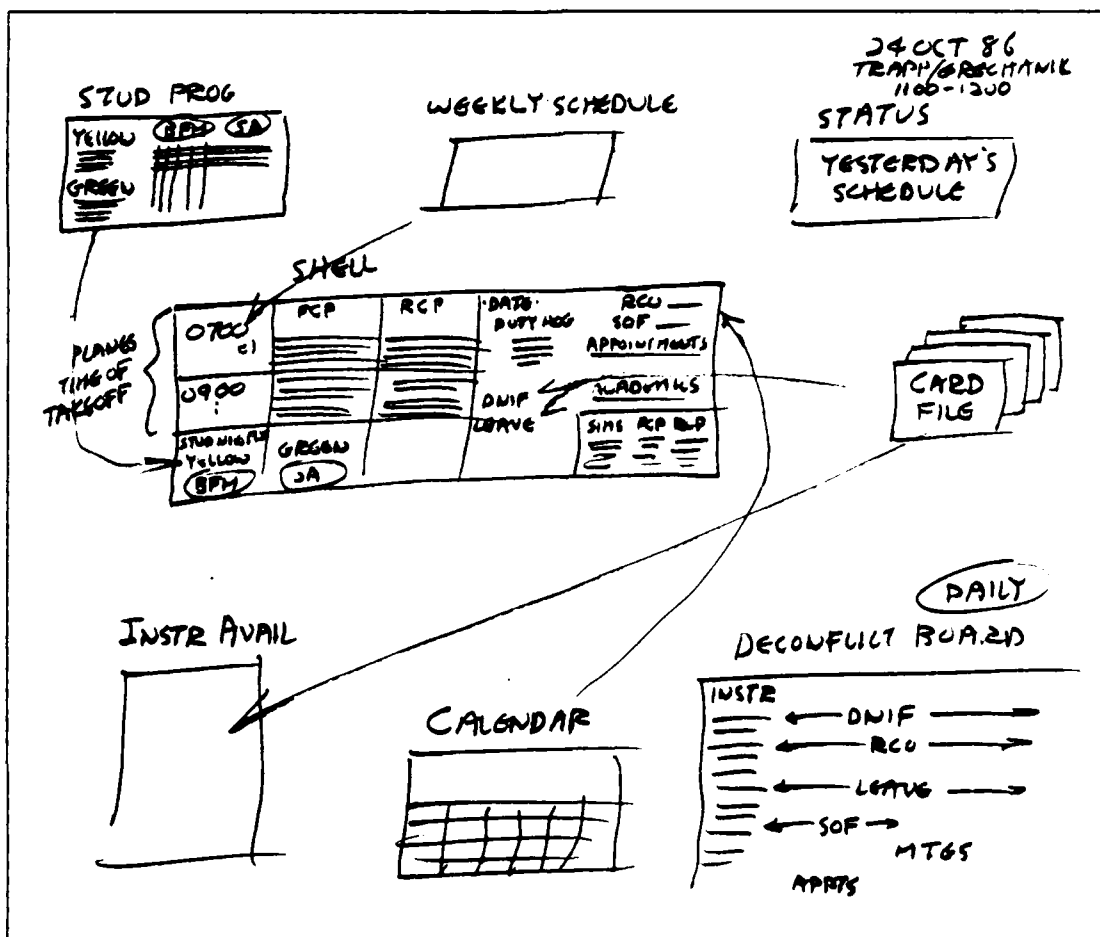 24 OCT 86
TRAPP/GRECHANIK
1100-1200
STUD PROG
YELLOW BFM SA
GREEN
WEEKLY SCHEDULE
STATUS
YESTERDAY'S
SCHEDULE
SHELL
PLANES
TIME OF
TAKEOFF
0700
0900
FCP
RCP
DATE
DUTY HOG
RCO
SOF
APPOINTMENTS
ACADEMICS
DNIF
LEAVE
SIMS FCP RCP
YELLOW
BFM
GREEN
SA
CARD
FILE
INSTR AVAIL
CALENDAR
DAILY
DECONFLICT BOARD
INSTR
DNIF
RCO
LEAVE
SOF
MTGS
APPTS